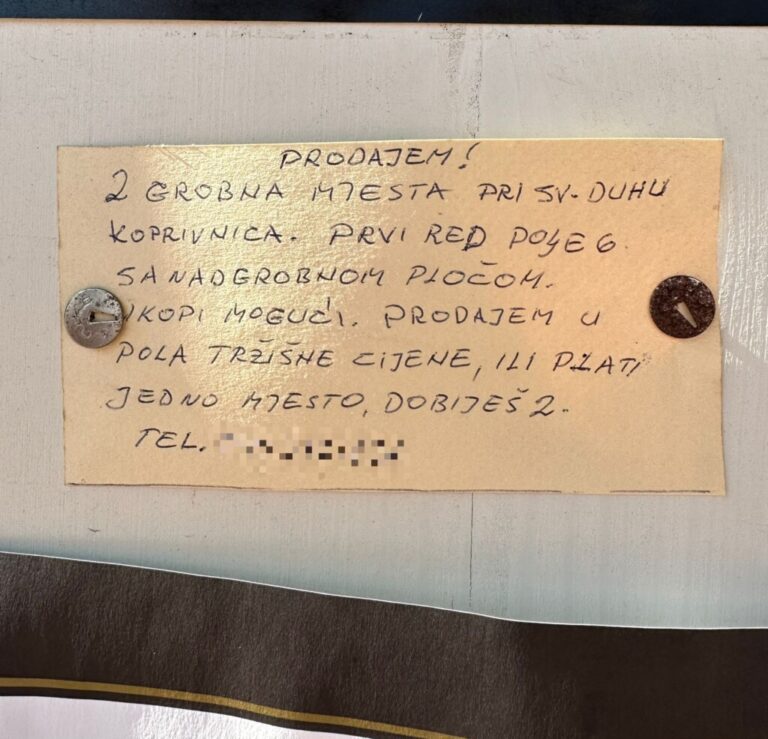 PRODAJEM!
2 GROBNA MJESTA PRI SV. DUHU
KOPRIVNICA. PRVI RED POLJE 6.
SA NADGROBNOM PLOČOM.
UKOPI MOGUĆI. PRODAJEM U
POLA TRŽIŠNE CIJENE, ILI PLATI
JEDNO MJESTO, DOBIJEŠ 2.
TEL.